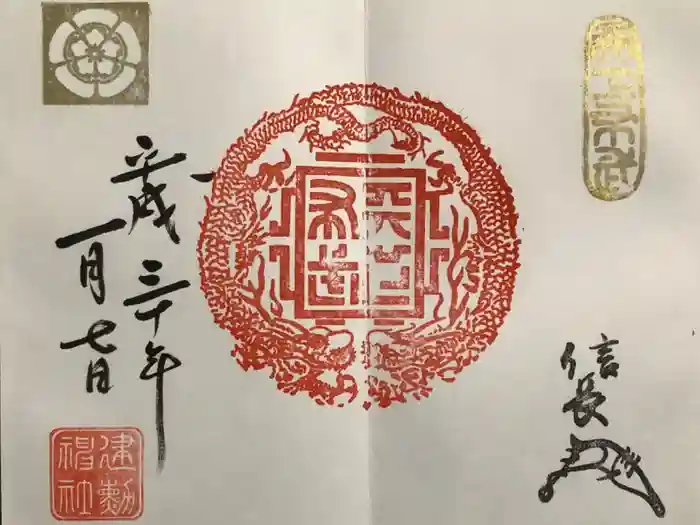 天下布武
信長
天下
布武
平成三十年
一月七日
建勲
神社